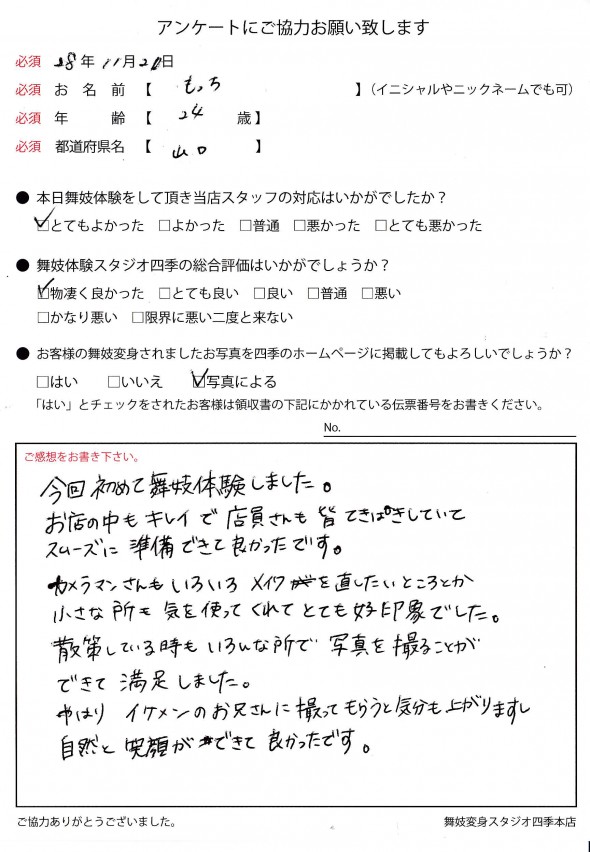 アンケートにご協力お願い致します
必須 28年 11月20日
必須 お名前【 もっち 】（イニシャルやニックネームでも可）
必須 年齢【 24 歳】
必須 都道府県名【 山口 】
● 本日舞妓体験をして頂き当店スタッフの対応はいかがでしたか？
☑とてもよかった □よかった □普通 □悪かった □とても悪かった
● 舞妓体験スタジオ四季の総合評価はいかがでしょうか？
☑物凄く良かった □とても良い □良い □普通 □悪い
□かなり悪い □限界に悪い二度と来ない
● お客様の舞妓変身されましたお写真を四季のホームページに掲載してもよろしいでしょうか？
□はい □いいえ ☑写真による
「はい」とチェックをされたお客様は領収書の下記にかかれている伝票番号をお書きください。
No.
ご感想をお書き下さい。
今回初めて舞妓体験しました。
お店の中もキレイで店員さんも皆てきぱきしていて
スムーズに準備できて良かったです。
カメラマンさんもいろいろメイクを直したいところとか
小さな所も気を使ってくれてとても好印象でした。
散策している時もいろんな所で写真を撮ることが
できて満足しました。
やはりイケメンのお兄さんに撮ってもらうと気分も上がりますし
自然と笑顔ができて良かったです。
ご協力ありがとうございました。
舞妓変身スタジオ四季本店